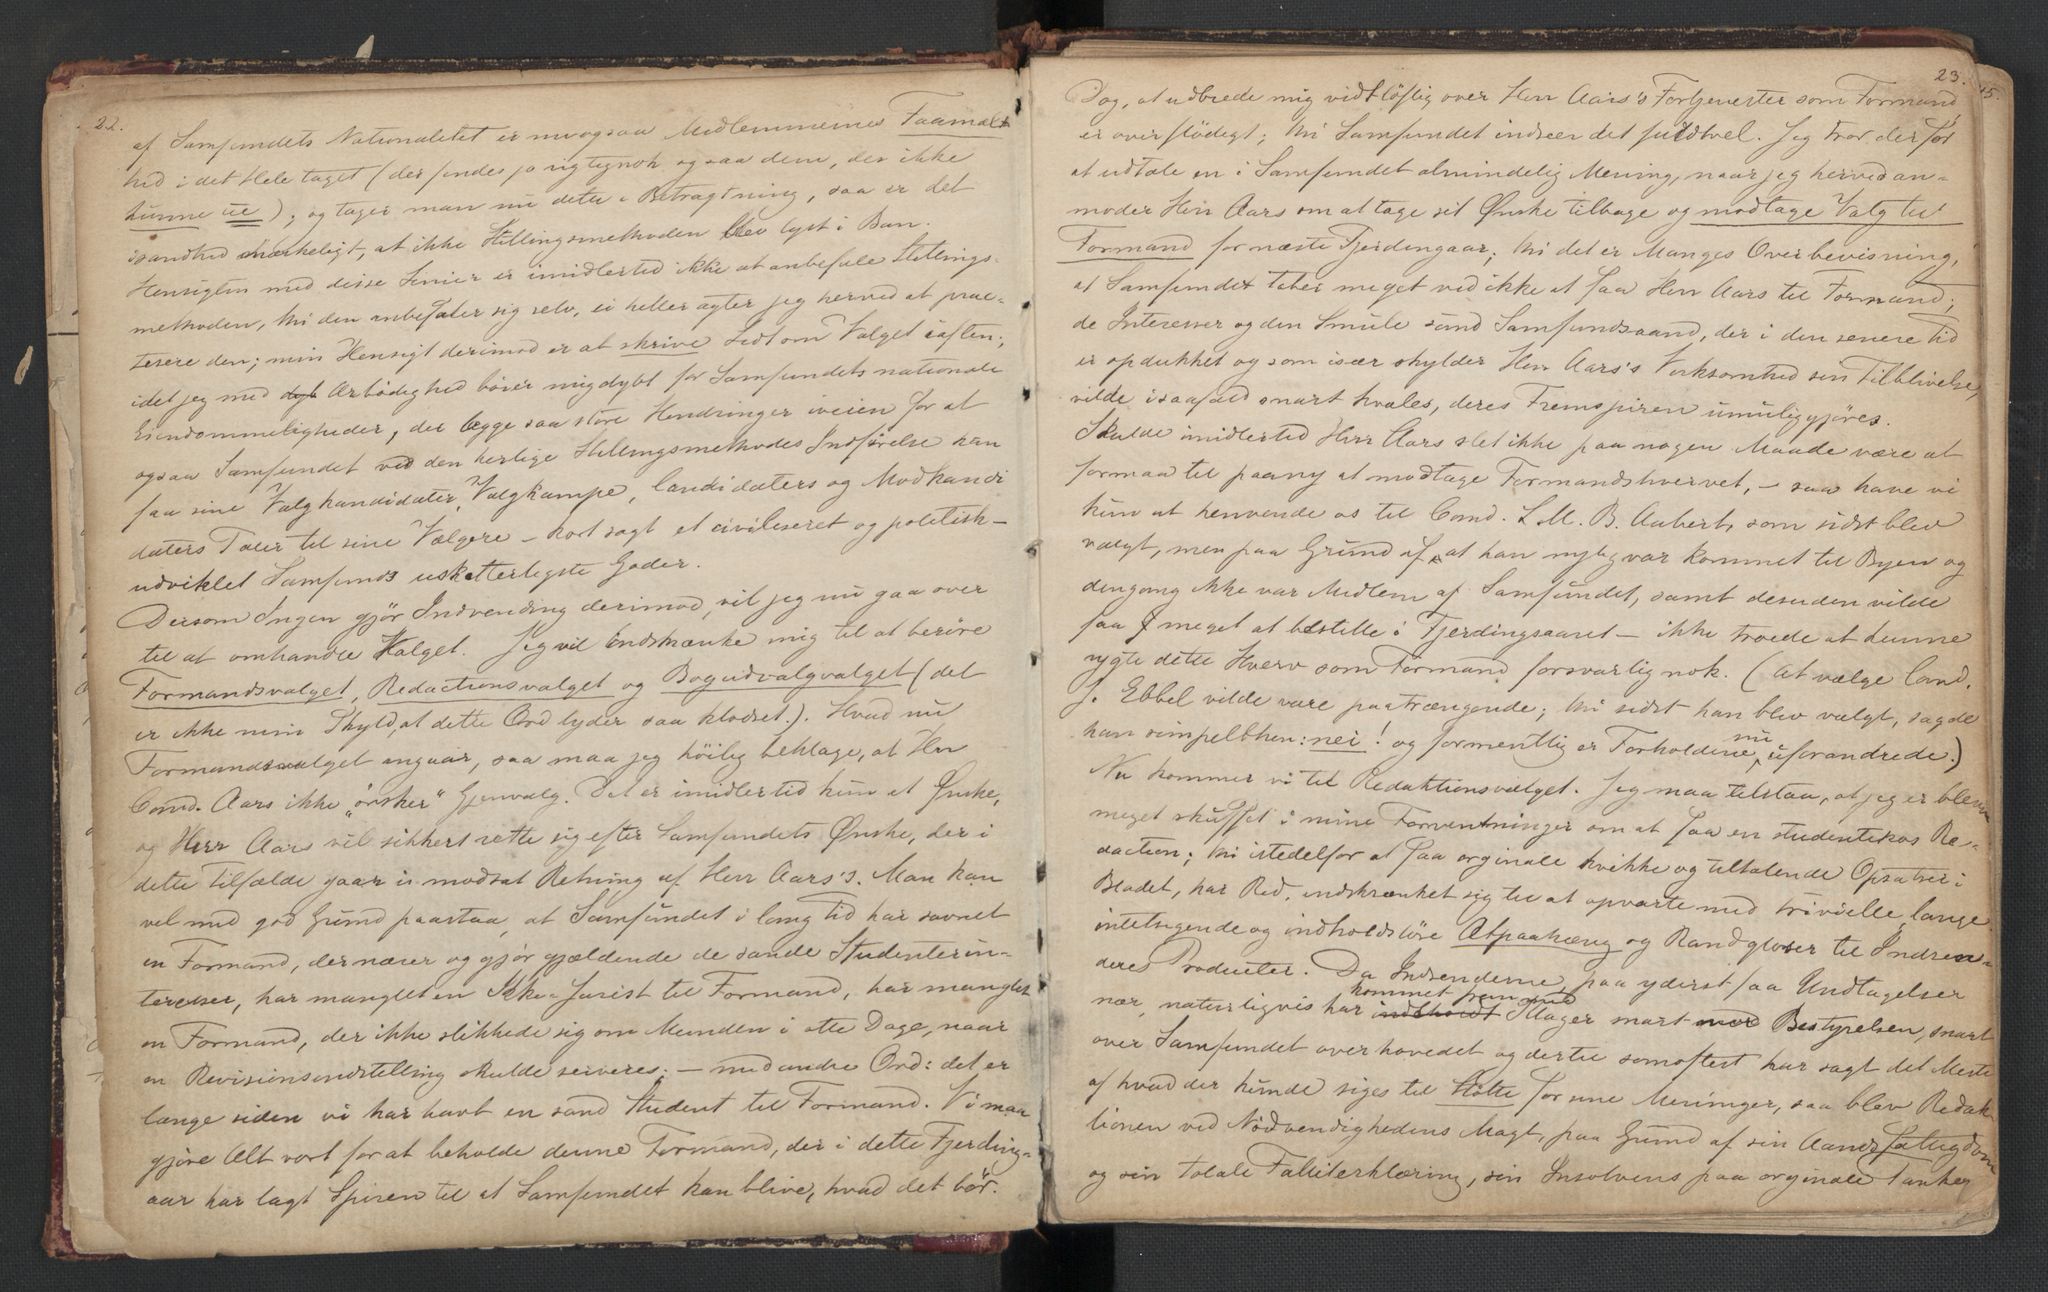 22.
af Samfundets Nationalitet er nu ogsaa Medlemmernes Faamælt
hed i det Hele taget (der findes jo rigtignok ogsaa dem, der ikke
kunne tie); og tager man nu dette i Betragtning, saa er det
isandhed mærkeligt, at ikke Stillingsmethoden blev lyst i Ban.
Hensigten med disse Linier er imidlertid ikke at anbefale Stillings-
methoden, thi den anbefaler sig selv, ei heller agter jeg herved at prac-
tesere den; min Hensigt derimod er at skrive lidt om Valget iaften;
idet jeg med dyb Ærbødighed bøier mig dybt for Samfundets nationale
Eiendommeligheder, der lægge saa store Hindringer iveien for at
ogsaa Samfundet ved den herlige Stillingsmethodes Indførelse kan
faa sine Valgkandidater, Valgkampe, Candidaters og Modkandi
daters Taler til sine Vælgere – kort sagt et civiliseret og politisk-
udviklet Samfunds uskatterligste Goder.
Dersom Ingen gjør Indvending derimod, vil jeg nu gaa over
til at omhandle Valget. Jeg vil indskrænke mig til at berøre
Formandsvalget, Redactionsvalget og Bogudvalgvalget (det
er ikke min Skyld, at dette Ord lyder saa klodset.). Hvad nu
Formandsvalget angaar, saa maa jeg høilig beklage, at Hrr
Cand. Aars ikke "ønsker" Gjenvalg. Det er imidlertid kun et Ønske,
og Herr Aars vil sikkert rette sig efter Samfundets Ønske, der i
dette Tilfælde gaar is modsat Retning af Herr Aars's. Man kan
vel med god Grund paastaa, at Samfundet i lang Tid har savnet
en Formand, der nærer og gjør gjældende de sande Studenterin-
teresser, har manglet en Ikke-Jurist til Formand, har manglet
en Formand, der ikke slikkede sig om Munden i otte Dage, naar
en Revisionsindstilling skulde serveres; – med andre Ord: det er
længe siden vi har havt en sand Student til Formand. Vi maa
gjøre Alt vort for at beholde denne Formand, der i dette Fjerding-
aar har lagt Spiren til at Samfundet kan blive, hvad det bør.
23.
15.
Dog, at udbrede mig vidtløftig over Herr Aars's Fortjenester som Formand,
er overflødigt; thi Samfundet indseer det fuldtvel. Jeg tror derfor
at udtale en i Samfundet almindelig Mening, naar jeg herved an-
moder Herr Aars om at tage sit Ønske tilbage og modtage Valg til
Formand for næste Fjerdingaar; thi det er Manges Overbevisning,
at Samfundet taber meget ved ikke at faa Herr Aars til Formand;
de Interesser og den Smule sund Samfundsaand, der i den senere Tid
er opdukket og som især skylder Herr Aars's Virksomhed sin Tilblivelse,
vilde isaafald snart kvæles, deres Fremspiren umuliggjøres.
Skulde imidlertid Herr Aars slet ikke paa nogen Maade være at
formaa til paany at modtage Formandshvervet, – saa have vi
kun at henvende os til Cand. L. M. B. Aubert, som sidst blev
valgt, men paa Grund af, at han nylig var kommet til Byen og
dengang ikke var Medlem af Samfundet, samt desuden vilde
faa meget at bestille i Fjerdingaaret – ikke troede at kunne
rygte dette Hverv som Formand forsvarlig nok. (At vælge Cand.
J. Ebbel vilde være paatrængende; thi sidst han blev valgt, sagde
han simpelthen: nei! og formentlig er Forholdene nu uforandrede.)
Nu kommer vi til Redaktionsvalget. Jeg maa tilstaa, at jeg er bleven
meget skuffet i mine Forventninger om at faa en studentikos Re-
daction; thi istedetfor at faa orginale kvikke og tiltalende Opsatser i
Bladet, har Red. indskrænket sig til at opvarte med trivielle lange
intetsigende og indholdsløse Atpaahæng og Randgloser til Indsen-
deres Producter. Da Indsenderne, paa yderst faa Undtagelser
nær, naturligvis har indeholdt kommet frem med Klager snart over Bestyrelsen, snart
over Samfundet overhovedet og dertil somoftest har sagt det Meste
af hvad der kunde siges til Støtte for sine Meninger, saa blev Redak-
tionen ved Nødvendighedens Magt, paa Grund af sin Aandsfattigdom
og sin totale Falliterklæring, sin Insolvens paa orginale Tanker